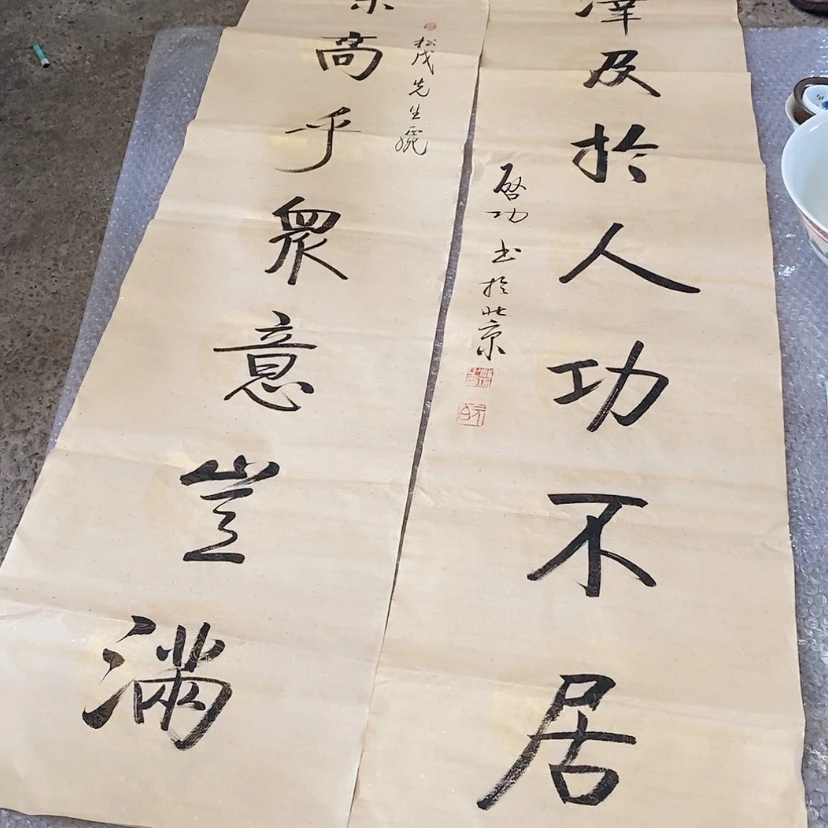 澤及於人功不居
啓功书於北京
松茂先生
高乎眾意豈滿